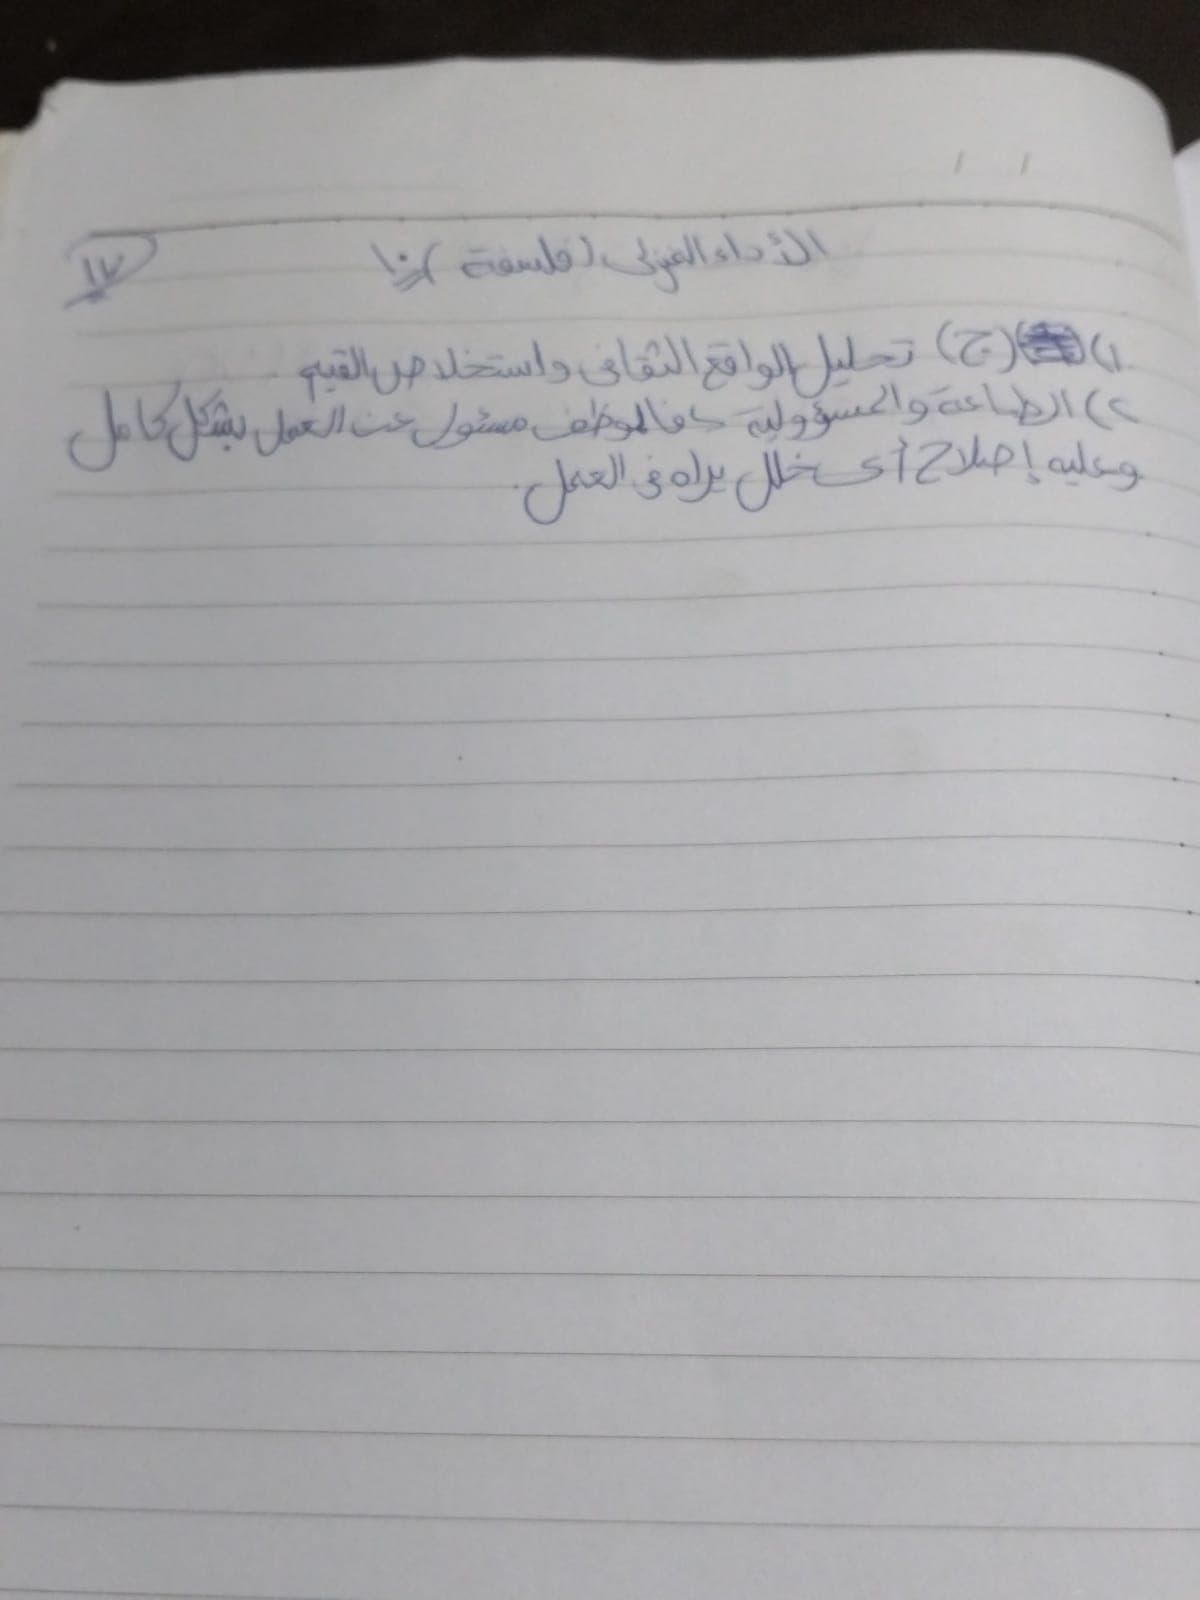 ١٧
الأداء المنزلى (فلسفة) ١٠
١) (ج) تحليل الواقع الثقافى واستخلاص القيم
٢) الطاعة والمسؤولية فالموظف مسئول عن العمل بشكل كامل
وعليه إصلاح أى خلل يراه فى العمل.